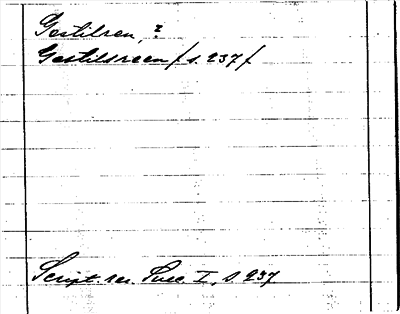 Gestilren, ?
Gestilsreen / s. 237 /
Script. rer. Suec. I, s. 237